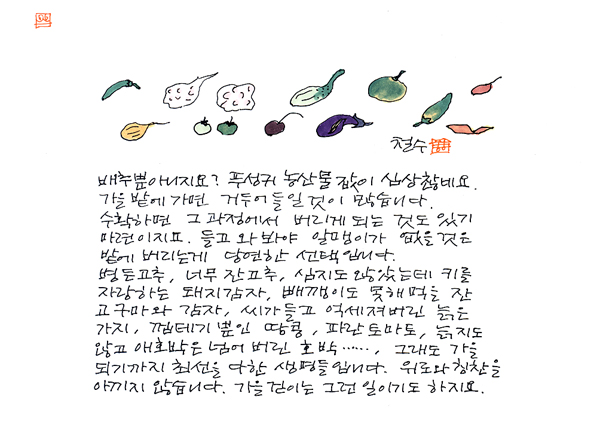 철수
배추뿐아니지요? 푸성귀 농산물 값이 심상찮네요.
가을 밭에 가면 거두어 들일 것이 많습니다.
수확하면 그 과정에서 버리게 되는 것도 있기
마련이지요. 들고 와 봐야 알맹이가 없을 것은
밭에 버리는게 당연한 선택입니다.
병든고추, 너무 잔고추, 심지도 않았는데 키를
자랑하는 돼지감자, 빼깽이도 못해먹을 잔
고구마와 감자, 씨가들고 억세져버린 늙은
가지, 껍데기 뿐인 땅콩, 파란토마토, 늙지도
않고 애호박은 넘어 버린 호박……, 그래도 가을
되기까지 최선을 다한 생명들입니다. 위로와 칭찬을
아끼지 않습니다. 가을걷이는 그런 일이기도 하지요.